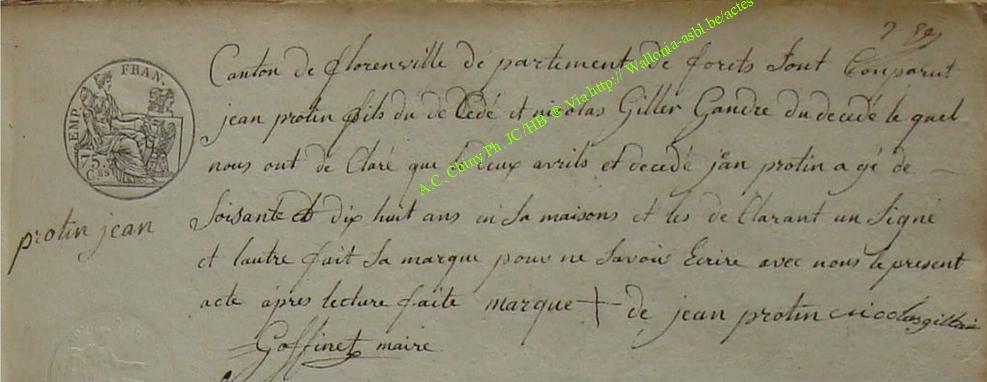 Canton de florenville de partement de forets Sont Conparut
jean protin fils du de Cedé et nicolas Giller Gandre du decedé le quel
nous ont de Claré que le deux avrils et decedé jean protin a gé de
Soisante et dix huit ans en Sa maisons et les de Clarant un Signé
et lautre fait Sa marque pour ne Savoir Ecrire avec nous le present
acte après lecture faite marque + de jean protin nicolas gillain
Goffinet maire
protin jean
EMP. FRAN.
75.
Ces
A.C. Chiny Ph. JC /HB ® Via http:// Wallonia-asbl.be/actes